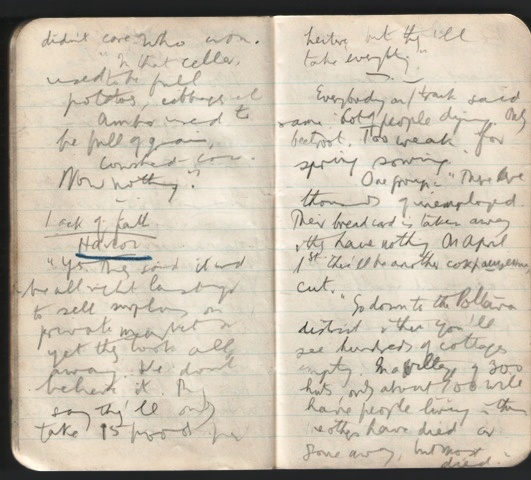 didn't care who won.
"In that cellar,
used to be full
potatos, cabbages
used to
be full of grain,
cow.
Now nothing".
Lack of faith
"Yes. They said it wd
be all right last
to sell surplus on
private market &
yet they took all
away. We don't
believe it. They
say they'll only
take 15 poods per
hectare but they'll
take everything"
Everybody on track said
same. Lot of people dying. Only
beetroot. Too weak for
spring sowing.
One group: "There are
thousands of unemployed.
Their breadcard is taken away
& they have nothing. On April
1st there'll be another
cut.
"Go down to the Poltava
district & there you'll
see hundreds of cottages
empty. In a village of 300
huts, only about 100 will
have people living in them
others have died or
gone away, but most
died."